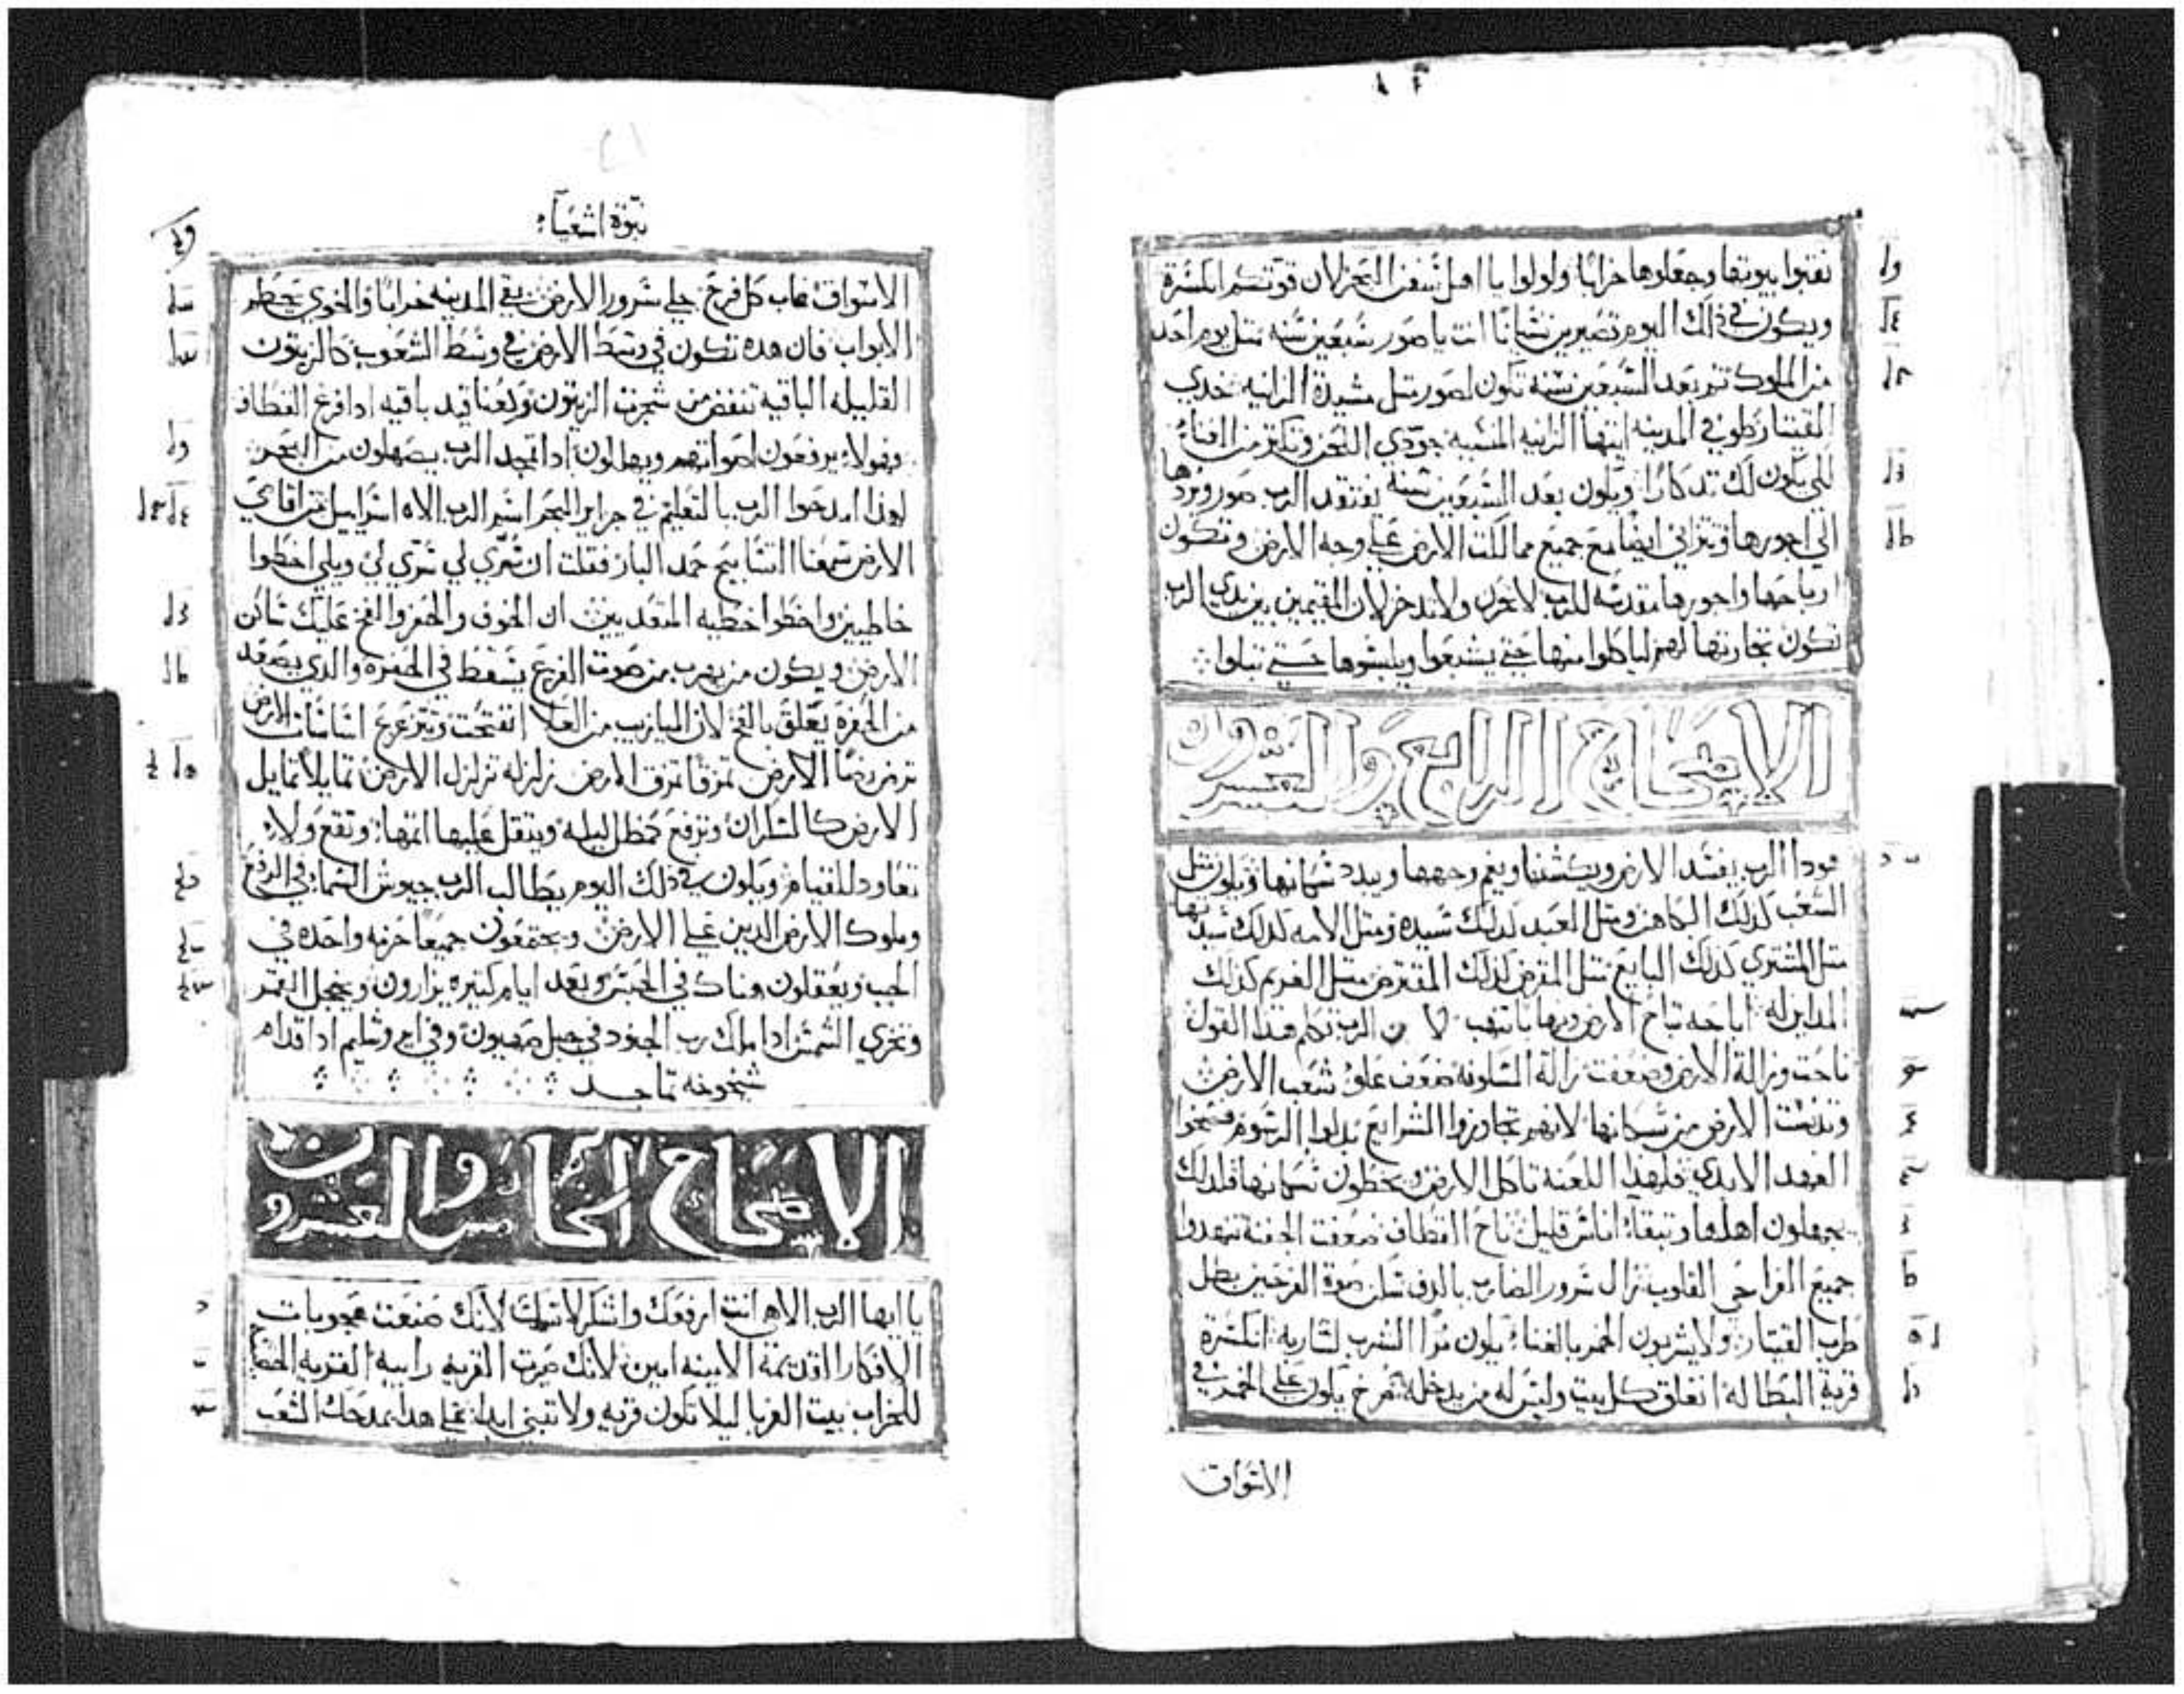 نقبوا بيوتها وجعلوها خرابًا ولولوا يا اهل سفن البحر لان قوتكم انكسرة
ويكون في ذلك اليوم تصيرين نسيانًا انت يا صور سبعين سنه مثل يوم احد
من الملوك تم بعد السبعين سنه تكون لصور مثل مشيدة الزانيه خدي
القيتار طوفي المدينه ايتها الزانيه المنسيه جودي اللحن وتكتري من الغناء
لكي يكون لك تدكارًا ويكون بعد السبعين سنه يفتقد الرب صور ويردها
الي اجورها وتزاني ايضًا مع جميع ممالك الارض علي وجه الارض وتكون
ارباحها واجورها مقدسه للرب لا تخزن ولا تدخر لان المقيمين بين يدي الرب
تكون تجارتها لهم لياكلوا منها حتي يشبعوا ويلبسوها حتي تبلوا
الاصحاح الرابع والعشرون
هودا الرب يفسد الارض ويكشفها ويغم وجهها ويبدد سكانها ويكون مثل
الشعب كدلك الكاهن ومثل العبد كدلك سيده ومثل الامه كدلك سيدتها
مثل المشتري كدلك البايع مثل المقرض كدلك المقترض مثل الغريم كدلك
المداين له اباحه تباح الارض ونهبا تنهب لان الرب تكلم هدا القول
ناحت وزالة الارض وضعفت زالة المسكونه ضعف علو شعب الارض
وتدنست الارض من سكانها لانهم تجاوزوا الشرايع بدلوا الرسوم فسخوا
العهد الابدي فلهدا اللعنة تاكل الارض ويخطون سكانها فلدلك
يجهلون اهلها وتبقاء اناس قليل ناح القطاف ضعفت الجفنة تنهدوا
جميع الفراحي القلوب زال سرور الضارب بالدف سكن صوة الفرحين بطل
طرب القيتار ولا يشربون الخمر بالغناء يكون مرًا الشرب لشاربه انكسرة
قرية البطالة انغلق كل بيت وليس له من يدخله صرخ يكون علي الخمر في
الاسواق
نبوة اشعياء
الاسواق غاب كل فرح جلي سرور الارض بقي المدينه خرابًا والخوي يحطم
الابواب فان هده تكون في وسط الارض في وسط الشعوب كالزيتون
القليله الباقيه تنفض من شجرت الزيتون وكعناقيد باقيه ادا فرغ القطاف
وهولاء يرفعون اصواتهم ويهللون ادا تمجد الرب يصهلون من البحر
لهذا امدحوا الرب بالتعليم في جزاير البحر اسم الرب الاه اسراييل من اقاصي
الارض سمعنا التسابيح حمد البار فقلت ان سري لي سري لي ويلي اخطوا
خاطيين واخطوا خطيه المتعديين ان الخوف والحفر والفخ عليك ساكن
الارض ويكون من يهرب من صوت الفزع يسقط في الحفره والدي يصعد
من الحفرة يعلق بالفخ لان الميازيب من العلا انفتحت وتتزعزع اساسات الارض
ترض رضًا الارض تمزقًا تمزق الارض زلزله تزلزل الارض تمايلًا تمايل
الارض كالسكران وترفع كمظل ليله ويتقل عليها اتمها وتقع ولا
تعاود للقيام ويكون في ذلك اليوم يطالب الرب جيوش السماء في الرفع
وملوك الارض الدين علي الارض ويجتمعون جميعًا حزمه واحده في
الجب ويعقلون هناك في الحبس وبعد ايام كتيره يزارون ويخجل القمر
وتخزي الشمس ادا ملك رب الجنود في جبل صهيون وفي اورشليم ادا قدام
شيخوخه تماجد
الاصحاح الخامس والعشرون
يا ايها الرب الاهي انت ارفعك واشكر لاسمك لانك صنعت عجوبات
الافكار القديمة الامينه امين لانك صيرت القريه رابيه القريه الحصينه
للخراب بيت الغربا ليلا تكون قريه ولا تبني ابدا علي هدا يمدحك الشعب